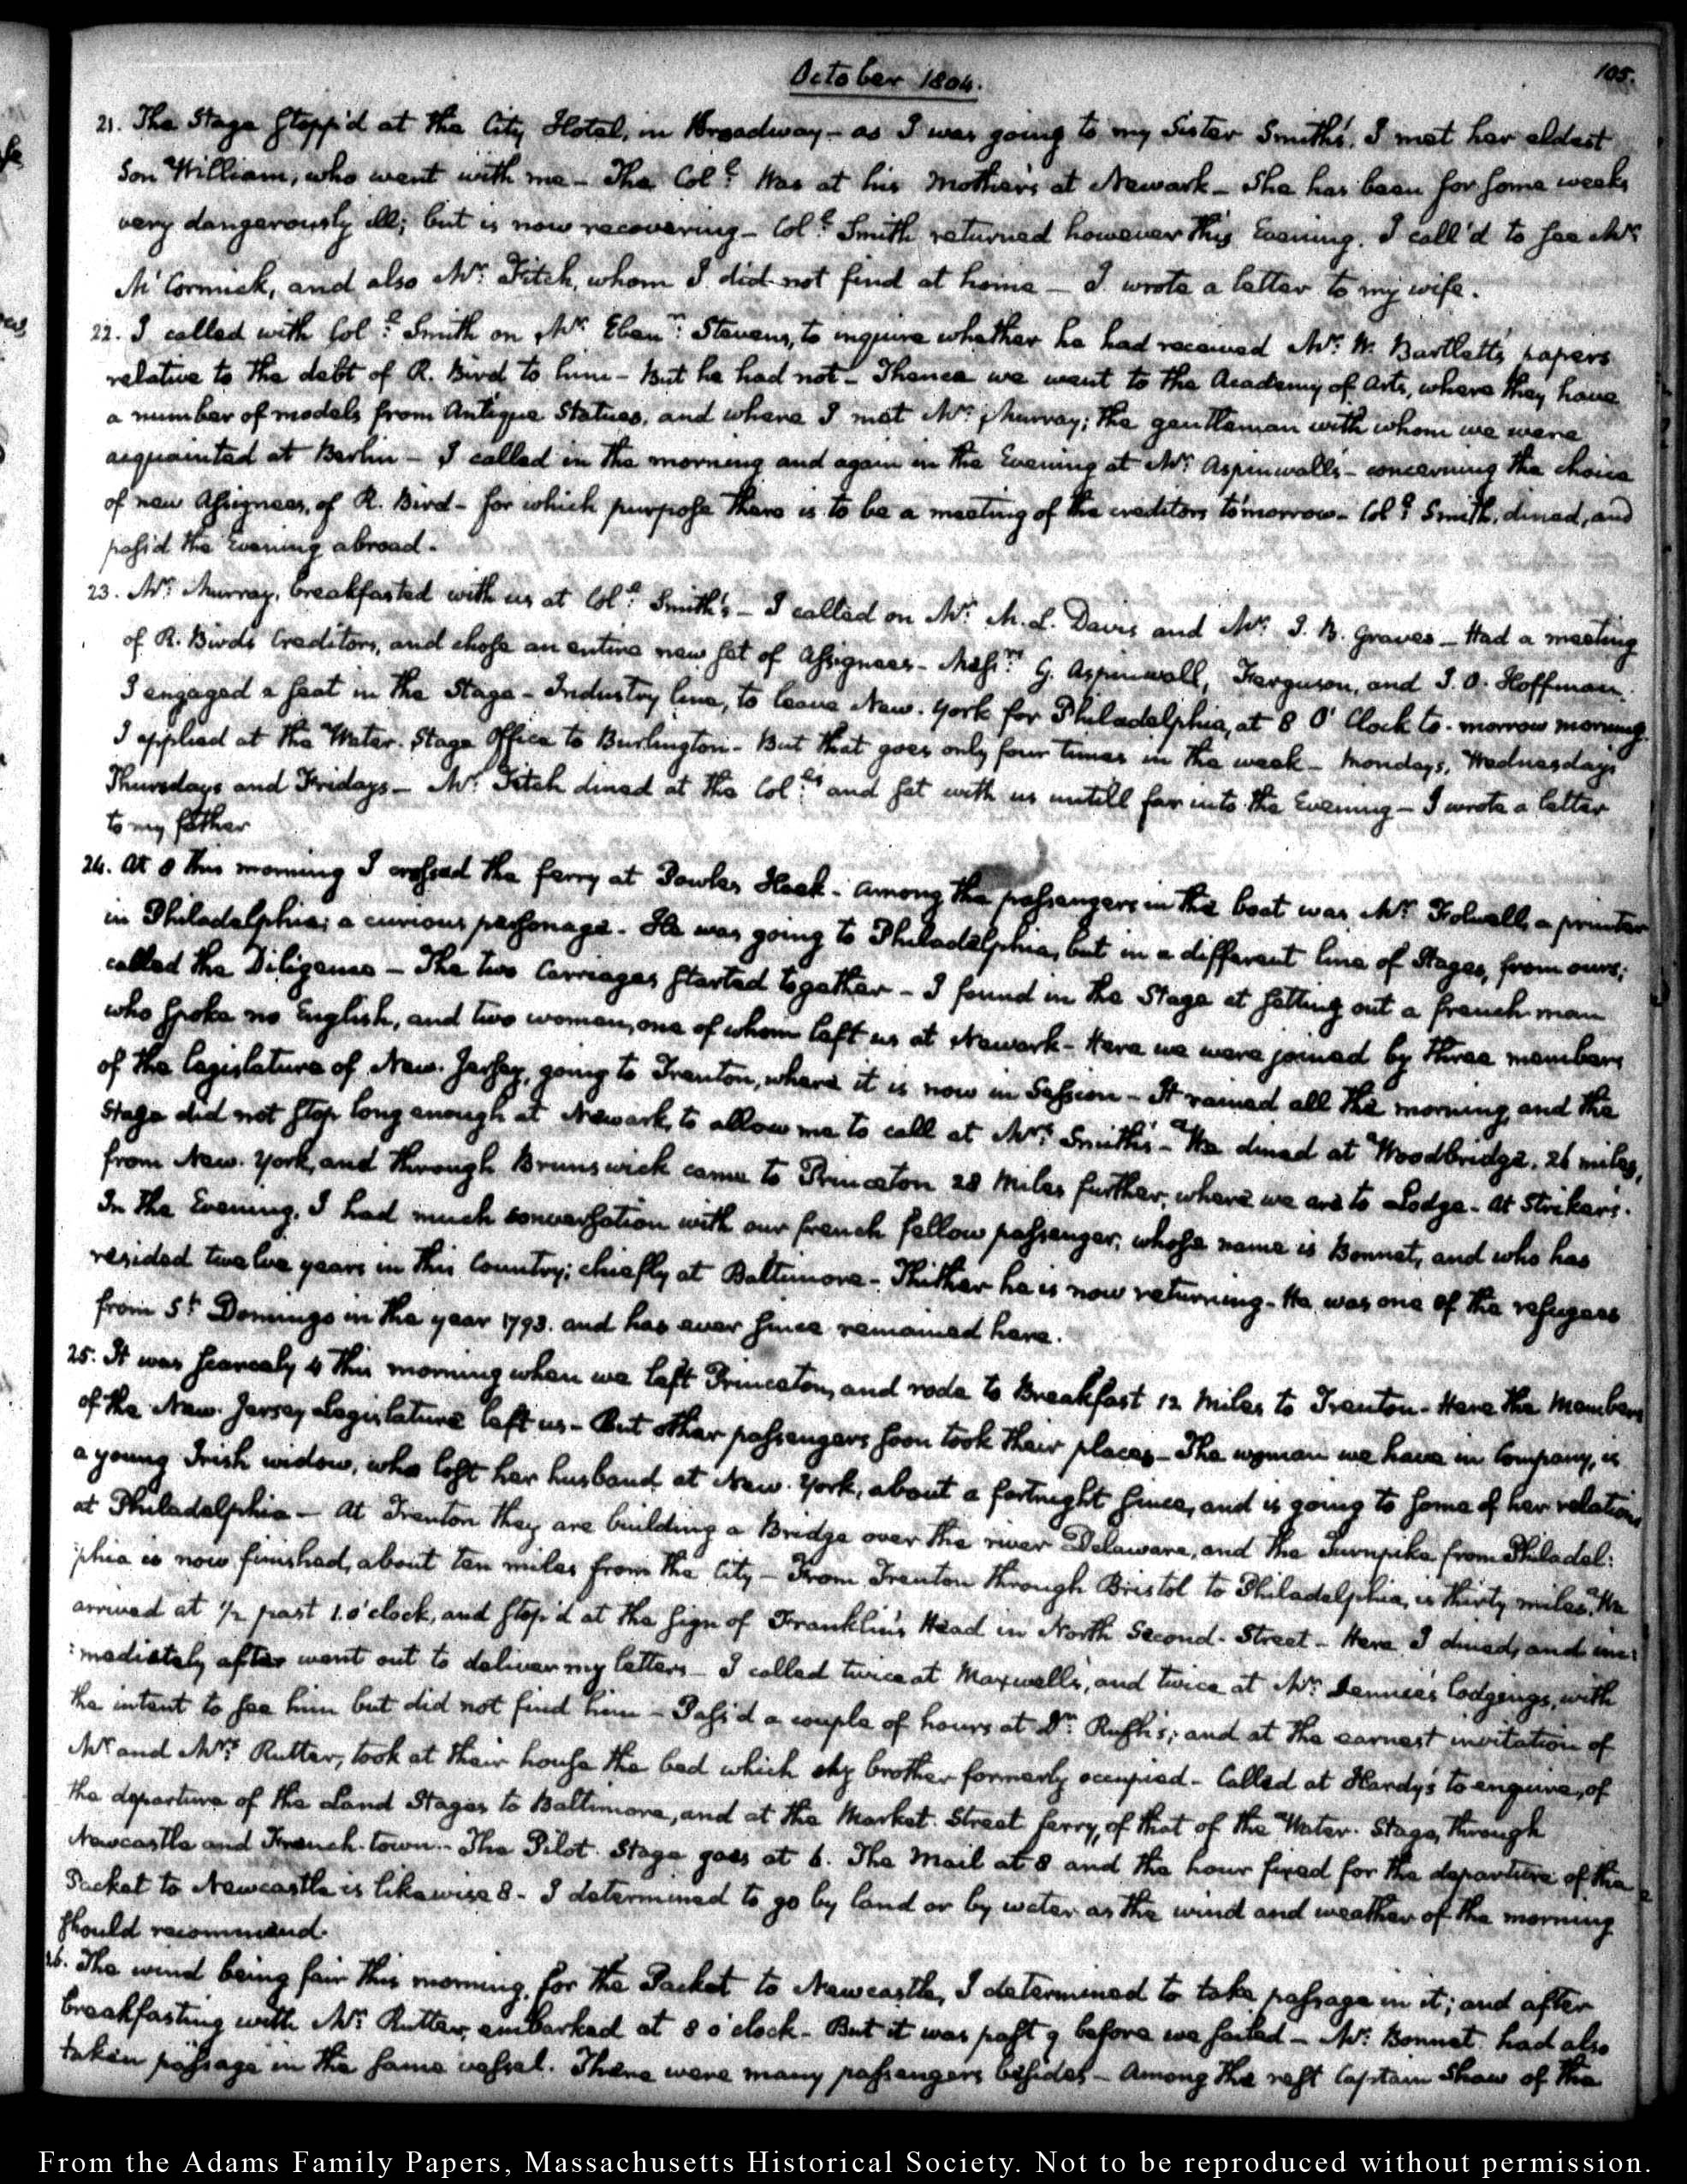 October 1804.
105.
21. The Stage stopp'd at the City Hotel, in Broadway - as I was going to my Sister Smith's, I met her eldest
Son William, who went with me - The Colo. Was at his Mother's at Newark - She has been for some weeks
very dangerously ill; but is now recovering - Colo. Smith returned however this Evening. I call'd to see Mr.
McCormick, and also Mr. Fitch, whom I did not find at home - I wrote a letter to my wife.
22. I called with Colo. Smith on Mr. Ebenr. Stevens, to inquire whether he had received Mr. W. Bartlett's papers
relative to the debt of R. Bird to him - But he had not - Thence we went to the Academy of Arts, where they have
a number of models from Antique Statues, and where I met Mr. Murray; the gentleman with whom we were
acquainted at Berlin - I called in the morning and again in the Evening at Mr. Aspinwall's - concerning the choice
of new Assignees, of R. Bird - for which purpose there is to be a meeting of the creditors to'morrow - Colo. Smith, dined, and
pass'd the Evening abroad -
23. Mr. Murray, breakfasted with us at Colo. Smith's - I called on Mr. M. L. Davis and Mr. J. B. Graves - Had a meeting
of R. Bird's Creditors, and chose an entire new set of Assignees - Messrs. G. Aspinwall, Ferguson, and J. O. Hoffman.
I engaged a seat in the Stage - Industry line, to leave New-York for Philadelphia, at 8 O'Clock to-morrow morning.
I applied at the Water-Stage Office to Burlington - But that goes only four times in the week - Mondays, Wednesdays
Thursdays and Fridays - Mr. Fitch dined at the Colo's and sat with us untill far into the Evening - I wrote a letter
to my father
24. At 8 this morning I crossed the ferry at Powles Hook - Among the passengers in the boat was Mr. Folwell, a printer
in Philadelphia; a curious personage - He was going to Philadelphia, but in a different line of Stages, from ours;
called the Diligence - The two Carriages started together - I found in the Stage at setting out a french-man
who spoke no English, and two women, one of whom left us at Newark - Here we were joined by three members
of the legislature of New-Jersey, going to Trenton, where it is now in Session - It rained all the morning, and the
Stage did not stop long enough at Newark, to allow me to call at Mrs. Smith's - We dined at Woodbridge, 26 miles,
from New-York, and through Brunswick came to Princeton 28 Miles further, where we are to Lodge - At Striker's.
In the Evening, I had much conversation with our french fellow passenger, whose name is Bonnet, and who has
resided twelve years in this Country; chiefly at Baltimore - Thither he is now returning - He was one of the refugees
from St. Domingo in the year 1793. and has ever since remained here.
25. It was scarcely 4 this morning when we left Princeton, and rode to Breakfast 12 Miles to Trenton - Here the Members
of the New-Jersey Legislature left us - But other passengers soon took their places - The woman we have in Company, is
a young Irish widow, who lost her husband at New-York, about a fortnight since, and is going to some of her relations
at Philadelphia - At Trenton they are building a Bridge over the river Delaware, and the Turnpike from Philadel:
:phia is now finished, about ten miles from the City - From Trenton through Bristol to Philadelphia, is thirty miles. We
arrived at 1/2 past 1. o'clock, and stop'd at the sign of Franklin's Head in North Second-Street - Here I dined, and im:
:mediately after went out to deliver my letters - I called twice at Maxwell's, and twice at Mr. Dennie's lodgings, with
the intent to see him but did not find him - Pass'd a couple of hours at Dr. Rush's; and at the earnest invitation of
Mr. and Mrs. Rutter, took at their house the bed which my brother formerly occupied - Called at Hardy's to enquire, of
the departure of the Land Stages to Baltimore, and at the Market-Street ferry, of that of the Water-Stage, through
Newcastle and French-town - The Pilot-Stage goes at 6. The Mail at 8 and the hour fixed for the departure of the
Packet to Newcastle is likewise 8 - I determined to go by land or by water as the wind and weather of the morning
should recommend.
26. The wind being fair this morning, for the Packet to Newcastle, I determined to take passage in it; and after
breakfasting with Mr. Rutter, embarked at 8 o'clock - But it was past 9 before we sailed - Mr. Bonnet had also
taken passage in the same vessel. There were many passengers besides - Among the rest Captain Shaw of the
From the Adams Family Papers, Massachusetts Historical Society. Not to be reproduced without permission.